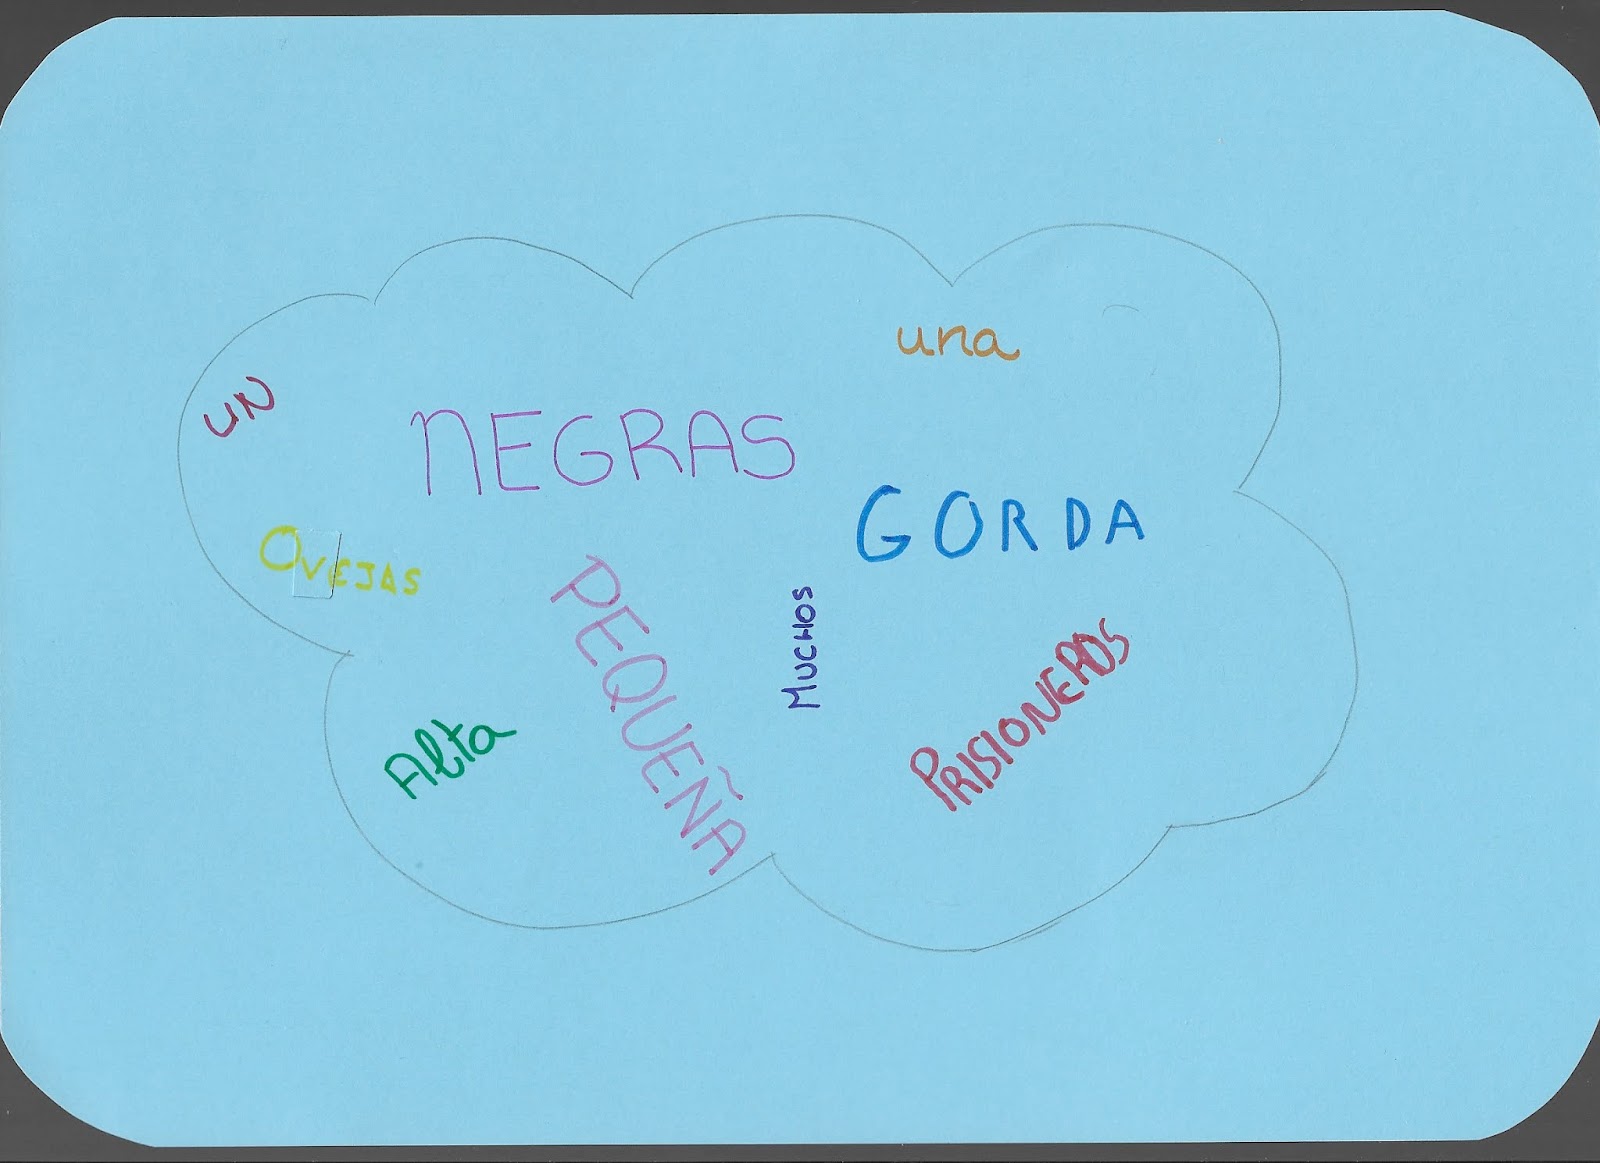 una
UN
NEGRAS
GORDA
OVEJAS
PEQUEÑA
MUCHOS
PRISIONEROS
Alta